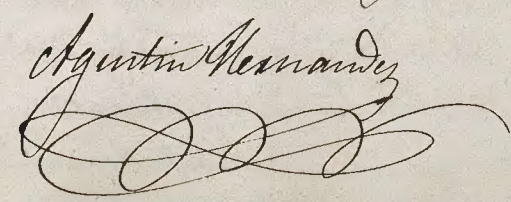 Agustin Hernandez